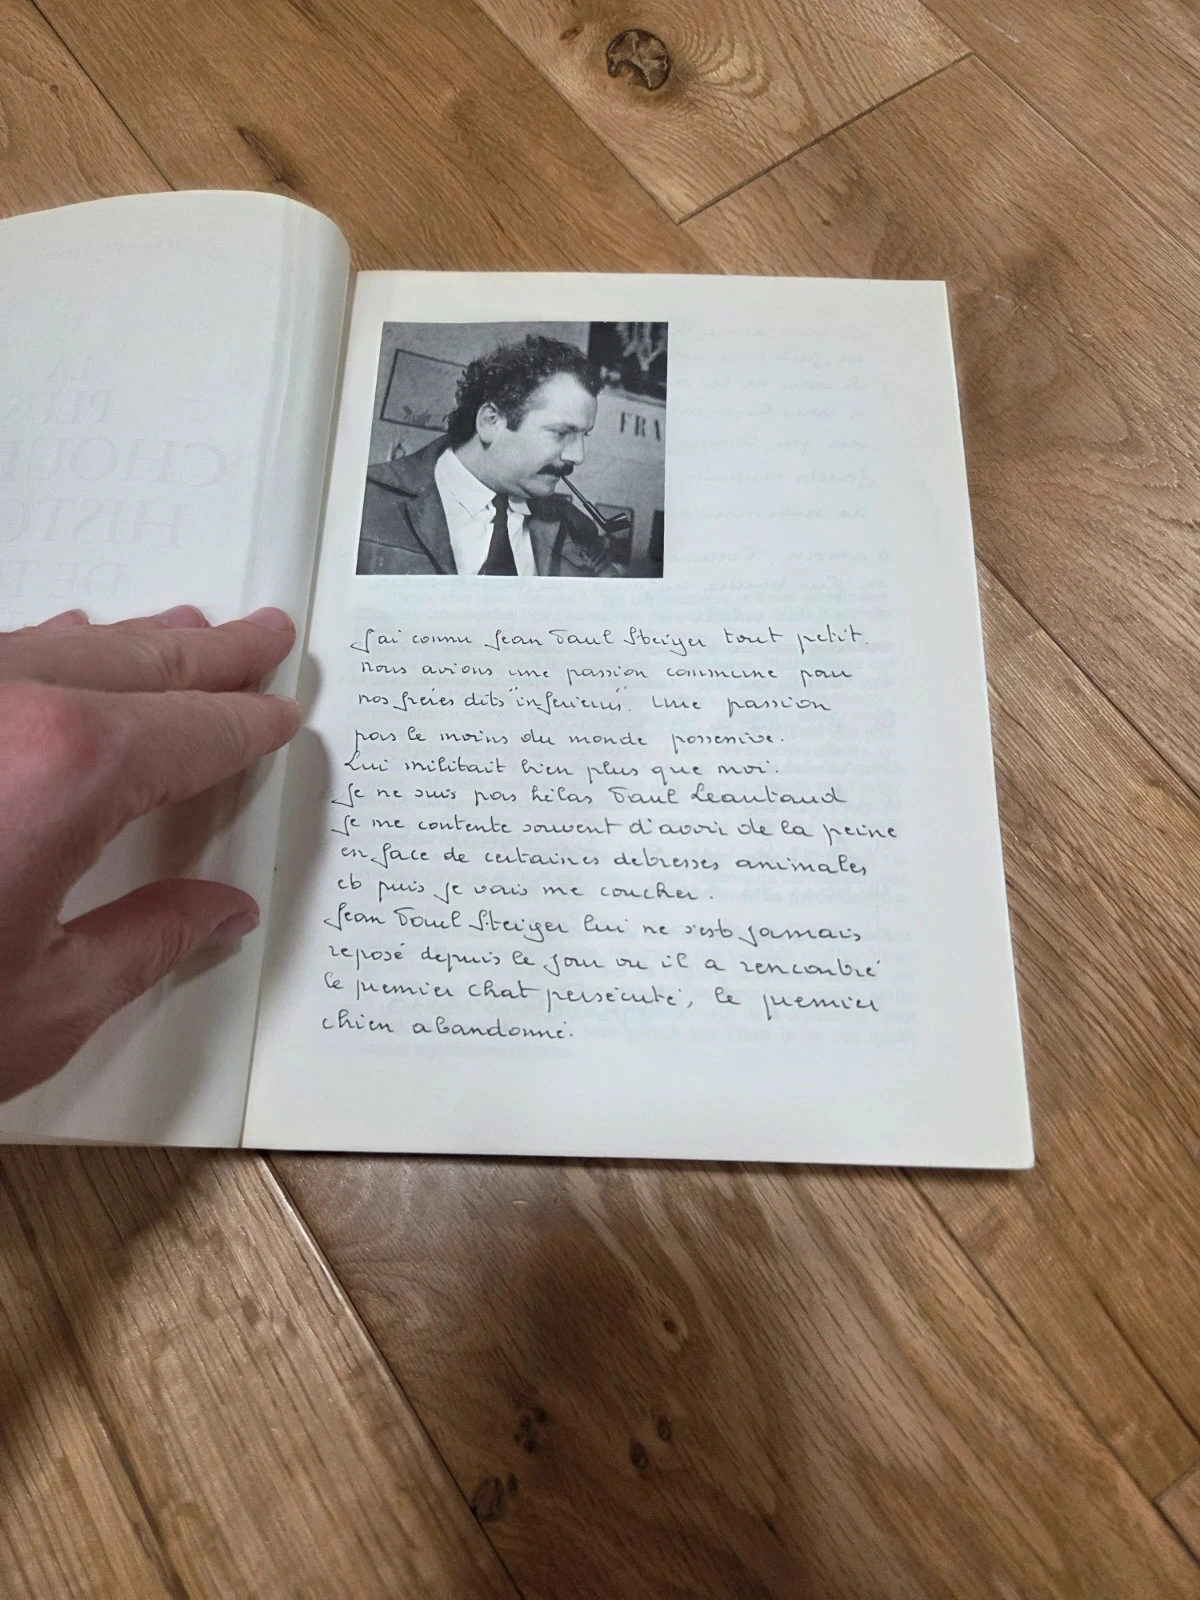 LA
PLUS
CHOUE
HISTO
DE T
FRA
J'ai connu Jean Paul Steiger tout petit.
nous avions une passion commune pour
nos frères dits "inférieurs". Une passion
pas le moins du monde possessive.
Lui militait bien plus que moi.
Je ne suis pas hélas Paul Léautaud
Je me contente souvent d'avoir de la peine
en face de certaines detresses animales
et puis je vais me coucher.
Jean Paul Steiger lui ne s'est jamais
reposé depuis le jour ou il a rencontré
le premier chat persécuté, le premier
chien abandonné.